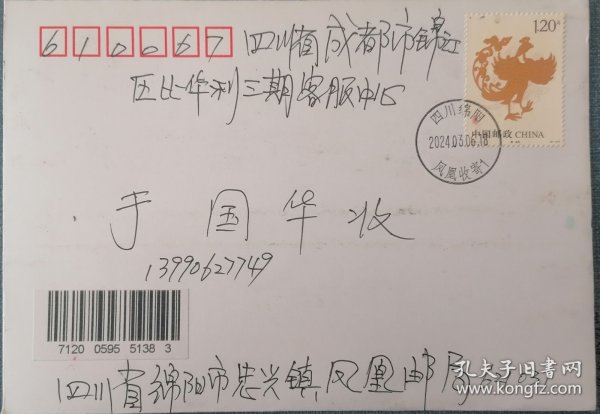 610067 四川省成都市锦江
区比华利三期客服中心
1.20元
中国邮政 CHINA
四川绵阳
2024.03.06.18
凤凰收寄1
于国华收
13990627749
7120 0595 5138 3
四川省绵阳市忠兴镇凤凰邮局
孔夫子旧书网
www.kongfz.com